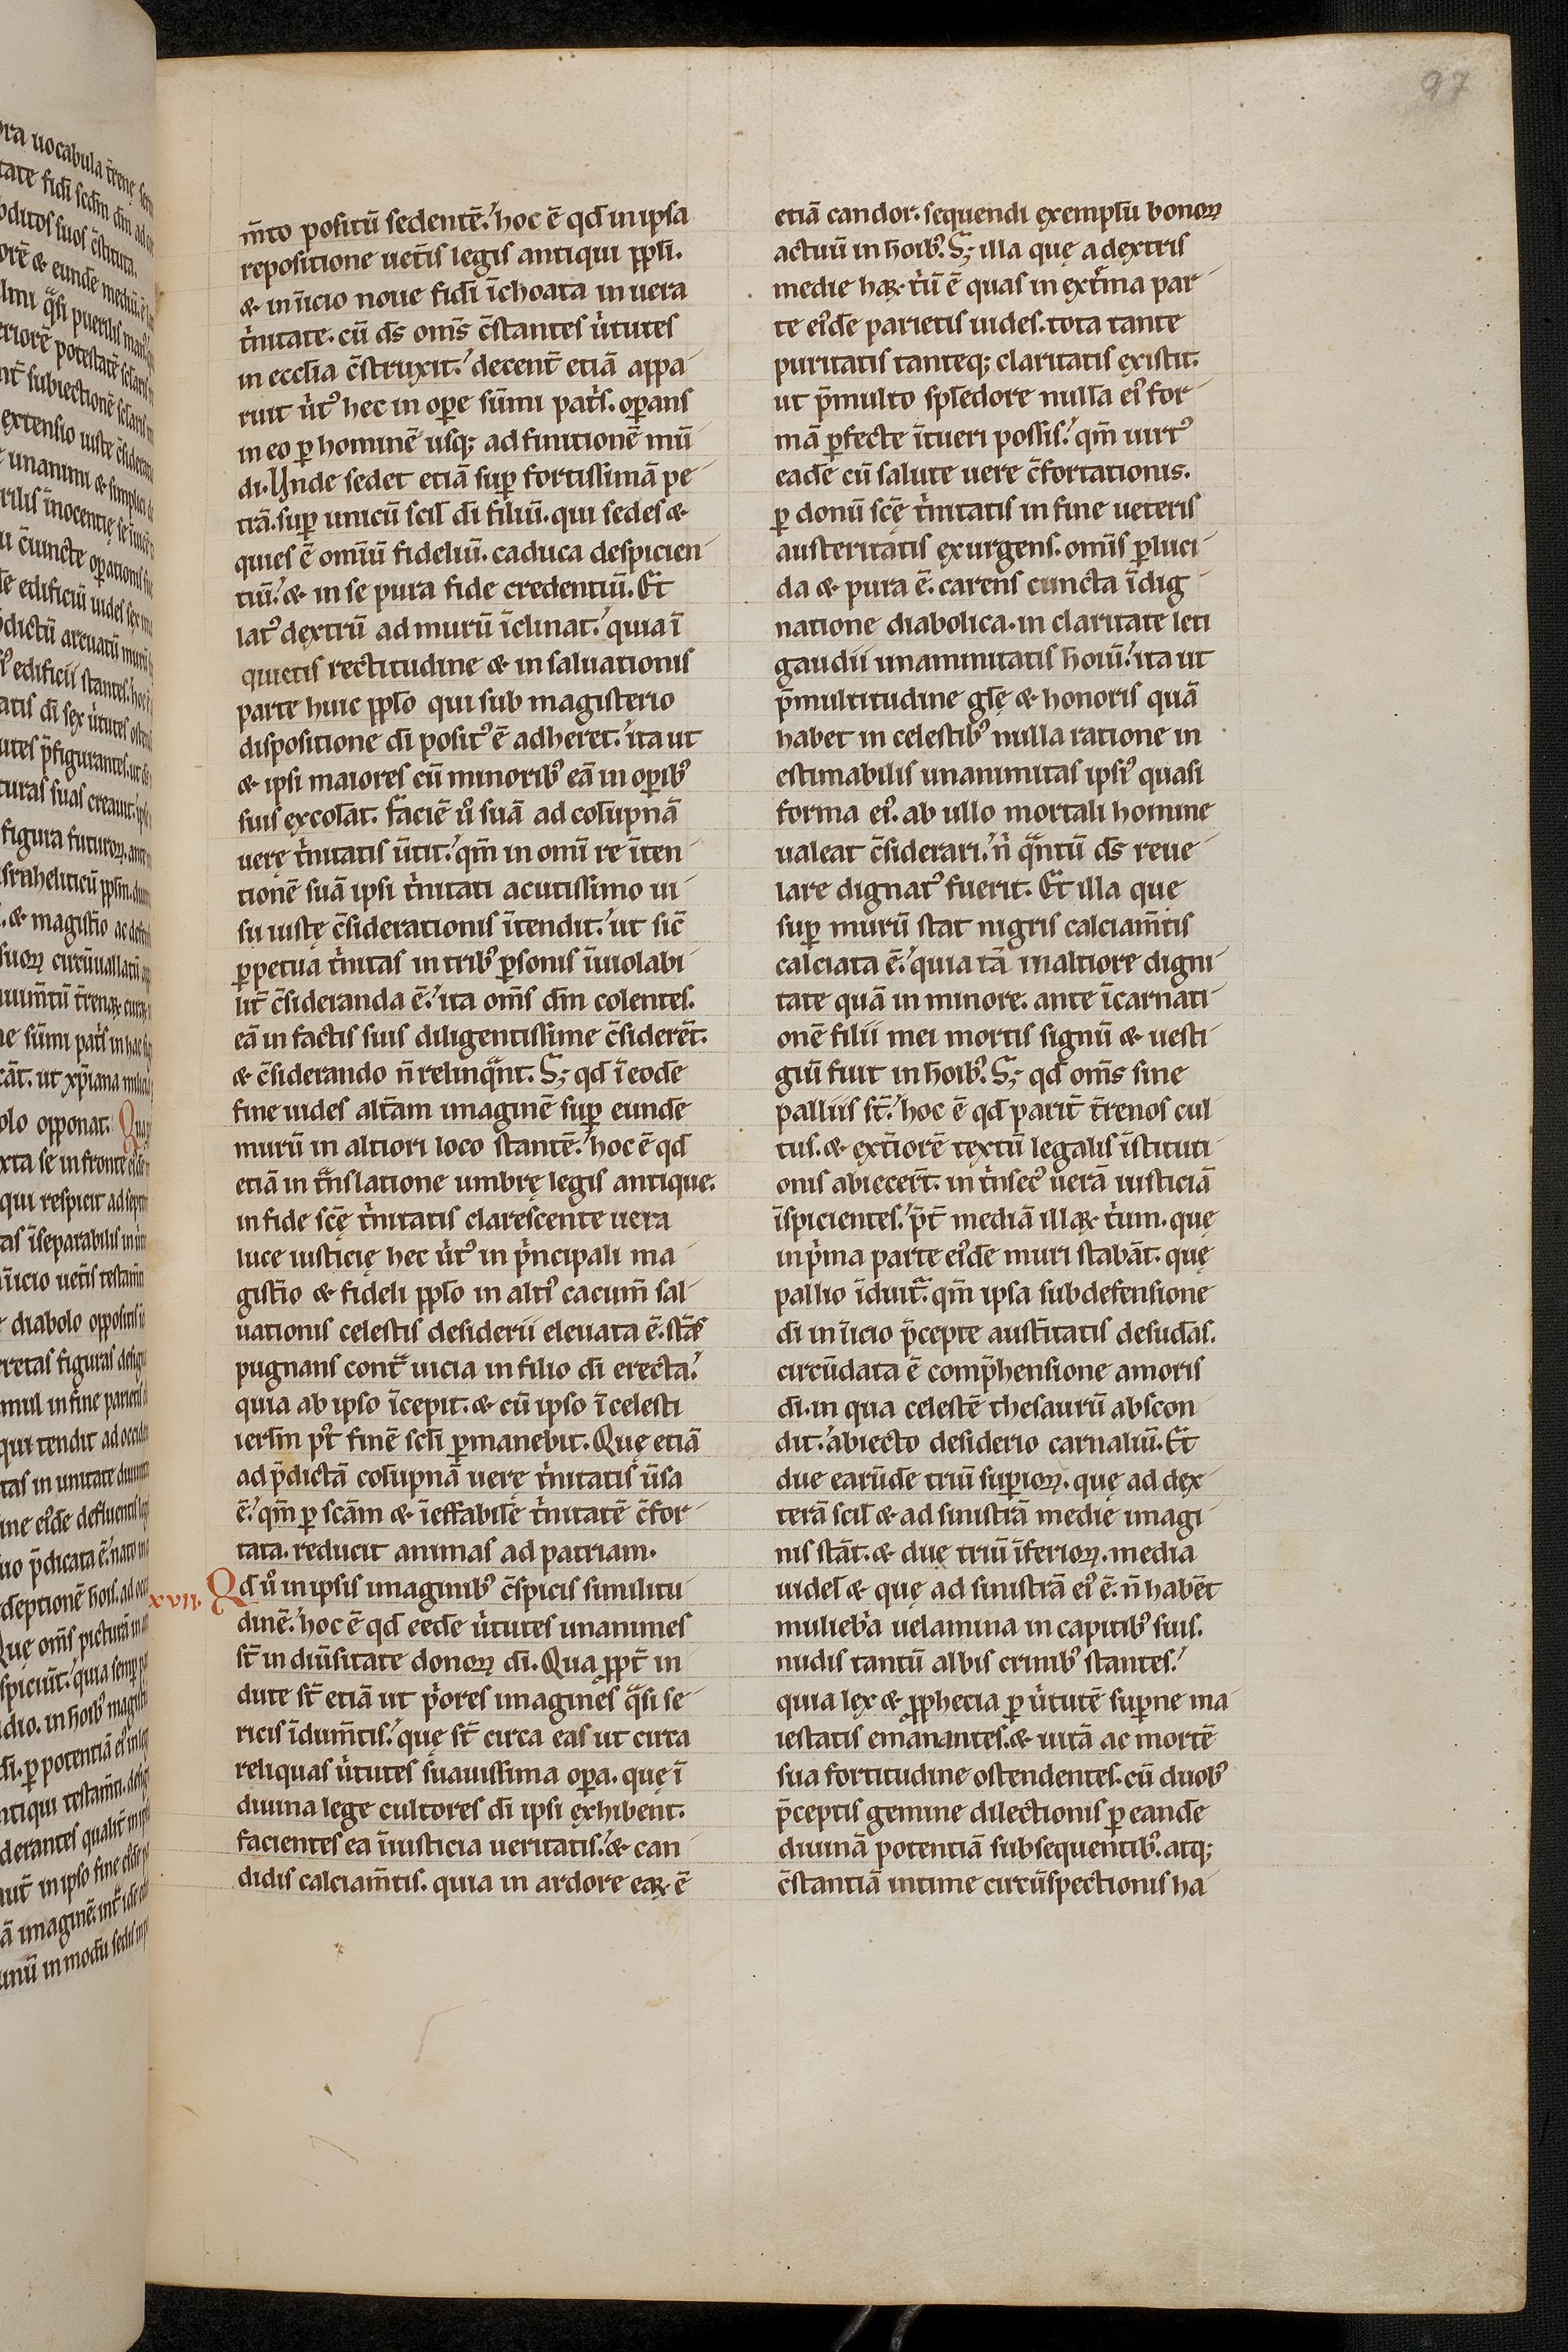 97
m̄to positū sedentē. hoc ē qd̄ in ipsa
repositione uet̄is legis antiqui pp̄li.
& in īicio noue fidi īchoata in uera
t̄nitate. cū dſ om̄s c̄stantes u̇tutes
in eccl̄ia c̄struxit. decent̄ etiā appa-
ruit u̇t᾿ hec in oꝑe sūmi pat̄s. oꝑans
in eo ꝑ hominē usq; ad finitionē mū-
di. Vnde sedet etiā suꝑ fortissimā pe-
trā. suꝑ unicū scil̄ dī filiū. qui sedes &
quies ē om̄iū fideliū. caduca despicien-
tiū. & in se pura fide credentiū. Et
lat᾿ dextrū ad murū īclinat. quia ī
quietis rectitudine & in saluationis
parte huic pp̄lo qui sub magisterio
dispositione dī posit᾿ ē adheret. ita ut
& ipsi maiores cū minorib᾿ eā in oꝑib᾿
suis excolāt. faciē u̇ suā ad colūpnā
uerę t̄nitatis ūtit. qm̄ in om̄i re īten-
tionē suā ipsi t̄nitati acutissimo ui-
su iustę c̄siderationis ītendit. ut sic̄
ꝑpetua t̄nitas in trib᾿ ꝑsonis īuiolabi-
lit̄ c̄sideranda ē. ita om̄s dm̄ colentes.
eā in factis suis diligentissime c̄siderēt.
& c̄siderando n̄ relinq̄nt. S; qd̄ ī eodē
fine uides alt̄am imaginē suꝑ eundē
murū in altiori loco stantē. hoc ē qd̄
etiā in t̄nslatione umbrę legis antique.
in fide scę̄ t̄nitatis clarescente uera
luce iusticię hec u̇t᾿ in p̄ncipali ma-
gist̄io & fideli pp̄lo in alti᾿ cacum̄ sal-
uationis celestis desiderii eleuata ē. stās
pugnans cont̄ uicia in filio dī erecta.
quia ab ipso īcepit. & cū ipso ī celesti
ierl̄m pt̄ finē scl̄i ꝑmanebit. Quę etiā
ad p̄dictā colūpnā uerę t̄nitatis ūsa
ē. qm̄ ꝑ scām & īeffabilē t̄nitatē c̄for-
tata. reducit animas ad patriam.
xvii. Qd̄ u̇ in ipsis imaginib᾿ c̄spicis similitu-
dinē. hoc ē qd̄ eedē u̇tutes unanimes
st̄ in diūsitate donoꝝ dī. Qua ꝓpt̄ in-
dute st̄ etiā ut p̄ores imagines q̄si se-
ricis īdum̄tis. quę st̄ circa eas ut circa
reliquas u̇tutes suauissima oꝑa. quę ī
diuina lege cultores dī ipsi exhibent.
facientes ea ī iusticia ueritatis. & can-
didis calciam̄tis. quia in ardore eaꝝ ē
etiā candor. sequendi exemplū bonoꝝ
actuū in hoīb᾿. S; illa quę a dextris
medie haꝝ t̄ū ē quas in ext̄ma par-
te ei᾿dē parietis uides. tota tante
puritatis tanteq; claritatis existit.
ut p̄ multo splēdore nullā ei᾿ for-
mā ꝑfecte ītueri possis. qm̄ uirt᾿
eadē cū salute uere c̄fortationis.
ꝑ donū scę̄ t̄nitatis in fine ueteris
austeritatis exurgens. om̄is ꝑluci-
da & pura ē. carens cuncta īdig-
natione diabolica. in claritate leti
gaudii unanimitatis hoīū. ita ut
p̄ multitudine glę̄ & honoris quā
habet in celestib᾿ nulla ratione in
estimabilis unanimitas ipsi᾿ quasi
forma ei᾿. ab ullo mortali homine
ualeat c̄siderari. n̄ q̄ntū dſ reue-
lare dignat᾿ fuerit. Et illa quę
suꝑ murū stat nigris calciam̄tis
calciata ē. quia tā in altiore digni-
tate quā in minore. ante īcarnati-
onē filii mei mortis signū & uesti-
giū fuit in hoīb᾿. S; qd̄ om̄s sine
palliis st̄. hoc ē qd̄ parit̄ t̄renos cul-
tus. & ext̄iorē textū legalis īstituti-
onis abiecer̄t. int̄nsec᾿ uerā iusticiā
īspicientes. p̄t̄ mediā illaꝝ t̄um. quę
in p̄ma parte ei᾿dē muri stabāt. quę
pallio īduit̄. qm̄ ipsa sub defensione
dī in īicio p̄cepte aust̄itatis desudās.
circūdata ē comp̄hensione amoris
dī. in qua celestē thesaurū abscon-
dit. abiecto desiderio carnaliū. Et
due earūdē triū suꝑioꝝ. quę ad dex-
terā scil̄ & ad sinistrā medię imagi-
nis stāt. & duę triū īferioꝝ. media
uidel̄ & quę ad sinistrā ei᾿ ē. n̄ habēt
mulieb̄a uelamina in capitib᾿ suis.
nudis tantū albis crinib᾿ stantes.
quia lex & ꝓphecia ꝑ u̇tutē suꝑne ma-
iestatis emanantes. & uitā ac mortē
sua fortitudine ostendentes. cū duob᾿
p̄ceptis gemine dilectionis ꝑ eandē
diuinā potentiā subsequentib᾿. atq;
c̄stantiā intime circūspectionis ha-